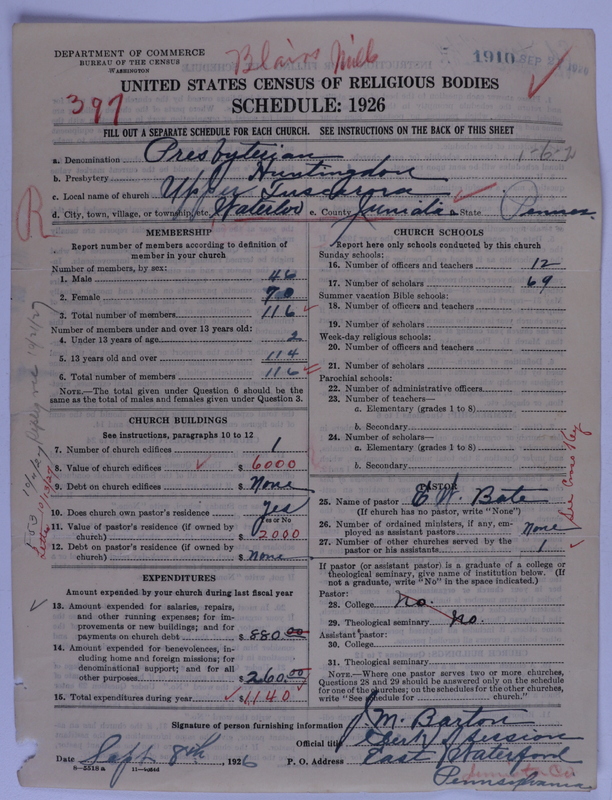 Blairs Mills
1910 SEP 2
DEPARTMENT OF COMMERCE
BUREAU OF THE CENSUS
WASHINGTON
UNITED STATES CENSUS OF RELIGIOUS BODIES
397
SCHEDULE: 1926
FILL OUT A SEPARATE SCHEDULE FOR EACH CHURCH. SEE INSTRUCTIONS ON THE BACK OF THIS SHEET
a. Denomination Presbyterian 1-6-2
b. Presbytery Huntingdon
c. Local name of church Upper Tuscarora
R
d. City, town, village, or township, etc. Waterloo e. County Juniata State Penna.
MEMBERSHIP
Report number of members according to definition of
member in your church
Number of members, by sex:
1. Male 46
2. Female 70
3. Total number of members 116
Number of members under and over 13 years old:
4. Under 13 years of age 2
5. 13 years old and over 114
6. Total number of members 116
NOTE.—The total given under Question 6 should be the
same as the total of males and females given under Question 3.
CHURCH BUILDINGS
See instructions, paragraphs 10 to 12
7. Number of church edifices 1
8. Value of church edifices $ 6000
9. Debt on church edifices $ None
10. Does church own pastor's residence Yes
Yes or No
11. Value of pastor's residence (if owned by
church) $ 2000
12. Debt on pastor's residence (if owned by
church) $ None
EXPENDITURES
Amount expended by your church during last fiscal year
13. Amount expended for salaries, repairs,
and other running expenses; for im-
provements or new buildings; and for
payments on church debt $ 880.00
14. Amount expended for benevolences, in-
cluding home and foreign missions; for
denominational support; and for all
other purposes $ 260.00
15. Total expenditures during year $ 1140
CHURCH SCHOOLS
Report here only schools conducted by this church
Sunday schools:
16. Number of officers and teachers 12
17. Number of scholars 69
Summer vacation Bible schools:
18. Number of officers and teachers
19. Number of scholars
Week-day religious schools:
20. Number of officers and teachers
21. Number of scholars
Parochial schools:
22. Number of administrative officers
23. Number of teachers—
a. Elementary (grades 1 to 8)
b. Secondary
24. Number of scholars—
a. Elementary (grades 1 to 8)
b. Secondary
PASTOR
25. Name of pastor E W. Bate
(If church has no pastor, write "None")
26. Number of ordained ministers, if any, em-
ployed as assistant pastors None
27. Number of other churches served by the
pastor or his assistants 1
If pastor (or assistant pastor) is a graduate of a college or
theological seminary, give name of institution below. (If
not a graduate, write "No" in the space indicated.)
Pastor:
28. College No.
29. Theological seminary No.
Assistant pastor:
30. College
31. Theological seminary
NOTE.—Where one pastor serves two or more churches,
Questions 28 and 29 should be answered only on the schedule
for one of the churches; on the schedules for the other churches,
write "See schedule for church."
Signature of person furnishing information J. M. Barton
Official title Clerk of Session
Date Sept. 8th, 1926 P. O. Address East Waterford
8-5518 a Pennsylvania